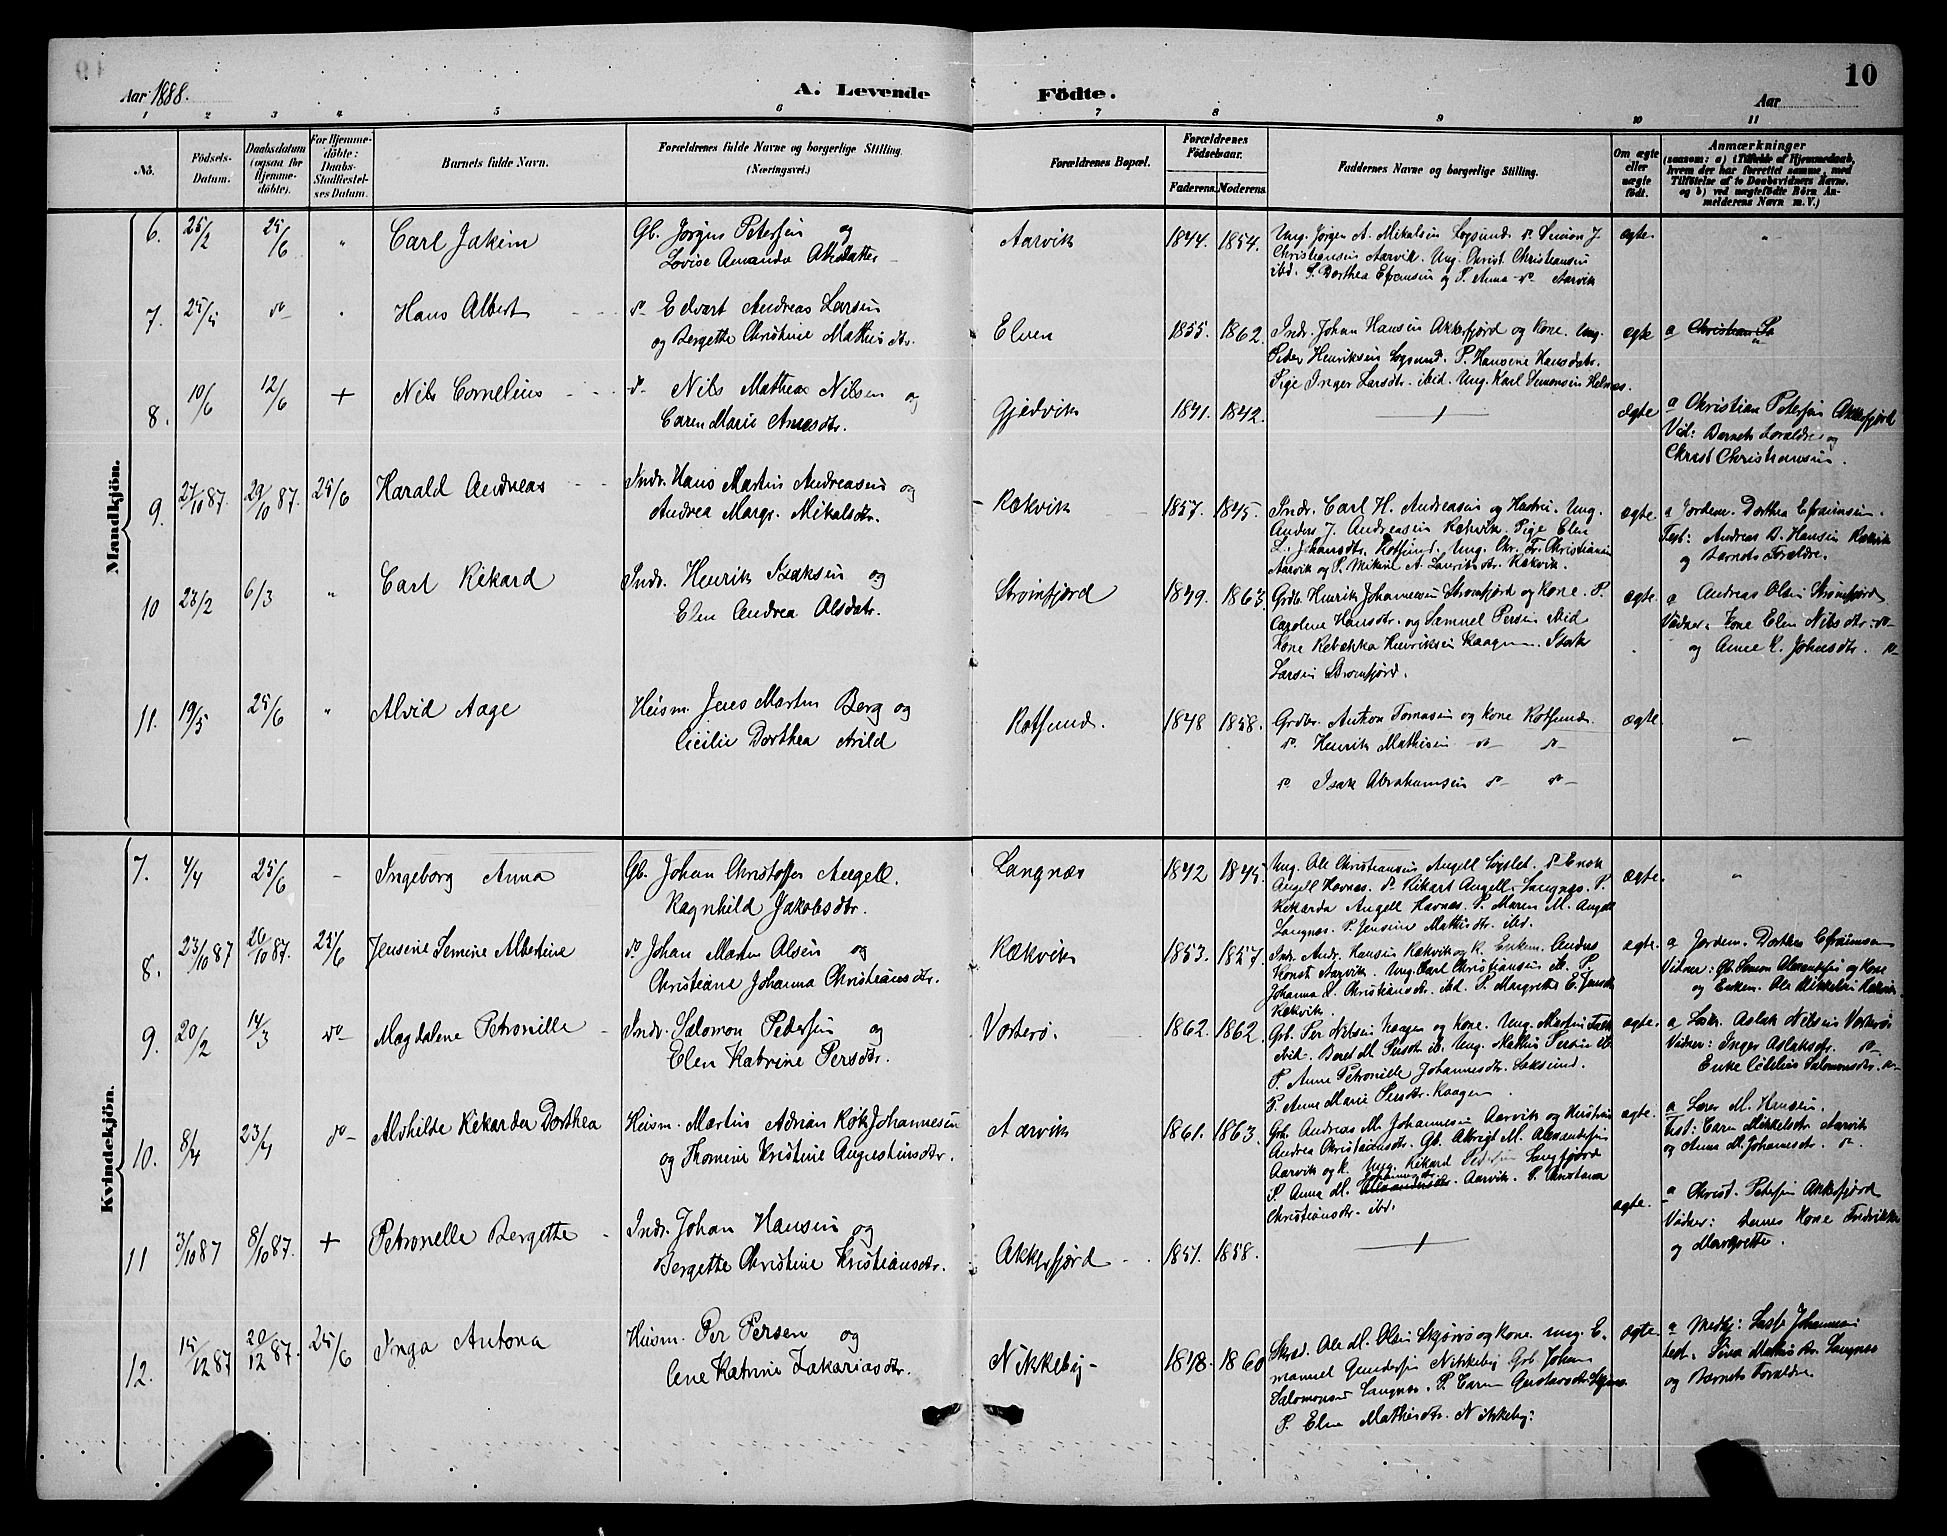 Aar 1888.
A. Levende Födte.
10
Aar
1 2 3 4 5 6 7 8 9 10 11
No.
Födsels-Datum.
Daabsdatum (ogsaa for Hjemme-döbte).
For Hjemme-döbte: Daabs-Stadfæstel-ses Datum.
Barnets fulde Navn.
Forældrenes fulde Navne og borgerlige Stilling. (Næringsvei.)
Forældrenes Bopæl.
Forældrenes Födselsaar.
Faderens. Moderens.
Faddernes Navne og borgerlige Stilling.
Om ægte eller uægte födt.
Anmærkninger
(saasom: a) i Tilfælde af Hjemmedaab,
hvem der har forrettet samme, med
Tilföielse af to Daabsvidners Navne.
og b) ved uægtefödte Börn An-
melderens Navn m. V.)
Mandkjön.
6. 25/2 25/6 " Carl Jakim Gb. Jörgen Petersen og
Lovise Amanda
Aarvik 1844. 1854. Ung. Jörgen A. Mikalsen Logsund. do Simon J.
Christiansen Aarvik. Ung. Christ Christiansen
ibd. P. Dorthea Efraimsen og P. Anna do Aarvik
ægte "
7. 25/5 do " Hans Albert do Edvart Andreas Larsen
og Bergette Christine Mathisdtr.
Elven 1855. 1862. Indr. Johan Hansen Akkefjord og Kone. Ung.
Peder Henriksen Logsund. P. Hansine Hansdatr.
Pige Inger Larsdtr. ibid. Ung. Karl Simonsen
ægte a Christian
8. 10/6 12/6 + Nils Cornelius do Nils Mathias Nilsen og
Caren Marie
Gjedvik 1841. 1842. ægte a Christian Petersen Akkefjord
Vid: Barnets Forældre og
Christ Christiansen.
9. 27/10 87. 29/10 87. 25/6 Harald Andreas Indr. Hans Martin Andreasen og
Andrea Margr. Mikalsdtr.
Rækvik 1857. 1845. Indr. Carl H. Andreasen og Hustru. Ung.
Anders J. Andreasen Rækvik. Pige Elen
L. Johansdtr. Rotsund. Ung. Chr. Fr. Christiansen
Aarvik og P. A. Lauritsdtr. Rækvik.
ægte. a Jordem. Dorthea Efraimsen.
Test: Andreas D. Hansen Rækvik
og Barnets Forældre.
10 23/2 6/3 " Carl Rikard Indr. Henrik Isaksen og
Elen Andrea Olsdatr.
Strömfjord 1849. 1863. Grdb. Henrik Johannesen Strömfjord og Kone. P.
Caroline Hansdtr. og Samuel Persen ibid
Kone Rebekka Henriksen Kaagen. Isak
Larsen Strömfjord.
ægte. a Andreas Olsen Strömfjord
Vidner. Kone Elen Nilsdtr. do
og Anne E. Johnsdtr. do
11. 19/5 25/6 " Alvid Aage Heism. Jens Martin Berg og
Cicilie Dorthea Arild
Rotsund. 1848 1858. Grdbr. Anton Tomasen og Kone Rotsund.
do. Henrik Mathisen do do
do. Isak Abrahamsen do do
ægte. "
Kvindekjön.
7. 4/4 25/6 - Ingeborg Anna Gb. Johan Christoffer Angell.
Ragnhild Jakobsdtr.
Langnæs 1842 1845. Ung. Ole Christiansen Angell Logslet. do Enok
Angell Havnæs. do Rikart Angell Langnæs. P.
Rikarda Angell Havnæs. P. Maren M. Angell
Langnæs. P. Jensine Mathisdtr. ibd.
ægte. "
8. 23/10 87 26/10 87. 25/6 Jensine Semine Albertine do Johan Martin Olsen og
Christiane Johanna Christiansdtr.
Rækvik 1853. 1857. Indr. Andr. Hansen Rækvik og K. Enkem. Anders
Konst Aarvik. Ung. Carl Christiansen ib. P.
Johanna L. Christiansdtr. ibd P. Margrethe E.
Rækvik.
ægte. a Jordem. Dorthea Efraimsen
Vidner: Gb. Simon Alexandersen og Kone
og Enkem. Ole Mikkelsen Rækvik
9. 20/2 14/3 do Magdalene Petronille Indr. Salomon Pedersen og
Elen Katrine Persdtr.
Vorterö. 1862. 1862. Grb. Per Nilsen Kaagen og Kone. Ung. Martin
ibid. Beret M. Persdtr ib. Ung. Mathis Persen ib.
P. Anne Petronille Johannesdtr.
P. Anne Marie Persdtr. Kaagen.
ægte. a Aslak Nilsen Vorterö
Vidner: Inger Aslaksdtr. do
Enke Cicilie Salomonsdtr. do
10. 8/4 23/4 do Alvhilde Rikarda Dorthea Heism. Martin Adrian Rök Johannesen
og Thomine Kristine Augustinsdtr.
Aarvik 1861. 1863. Grb. Andreas M. Johannesen Aarvik og Hustru
Andrea Christiansdtr. Gb. M. Alexandersen
Aarvik og K. Ung. Rikard Pedersen Langfjord
P. Anna M. Johannesdtr. Aarvik. P. Christiana
Christiansdtr. ibd.
ægte. a Lærer M. Hansen.
Test: Caren Mikkelsdtr Aarvik
og Anna M. Johannesdtr. do.
11 3/10 87 8/10 87. + Petronelle Bergette Indr. Johan Hansen og
Bergette Christine Kristiansdtr.
Akkefjord 1851. 1858. ægte. a Christ. Petersen Akkefjord
Vidner: Kone Fredrikke
og Margrette.
12. 15/12 87 20/12 87. 25/6 Inga Antona Heism. Per Persen og
Ane Katrine Zakariasdtr.
Nikkeby 1848. 1860 Ole M. Olsen Skjervö og Kone. Ung. E-
manuel Gundersen Nikkeby Grb. Johan
Salomonsen Langnæs. P. Caren Gustavsdtr
P. Elen Mathisdtr. Nikkeby.
ægte. a
Test. Sina Mathisdtr. Langnæs
og Barnets Forældre